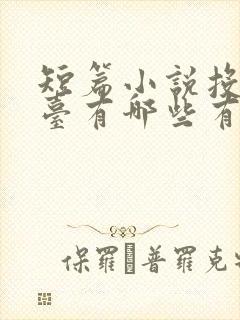 短篇小説投
臺有哪些有
保羅·普羅克